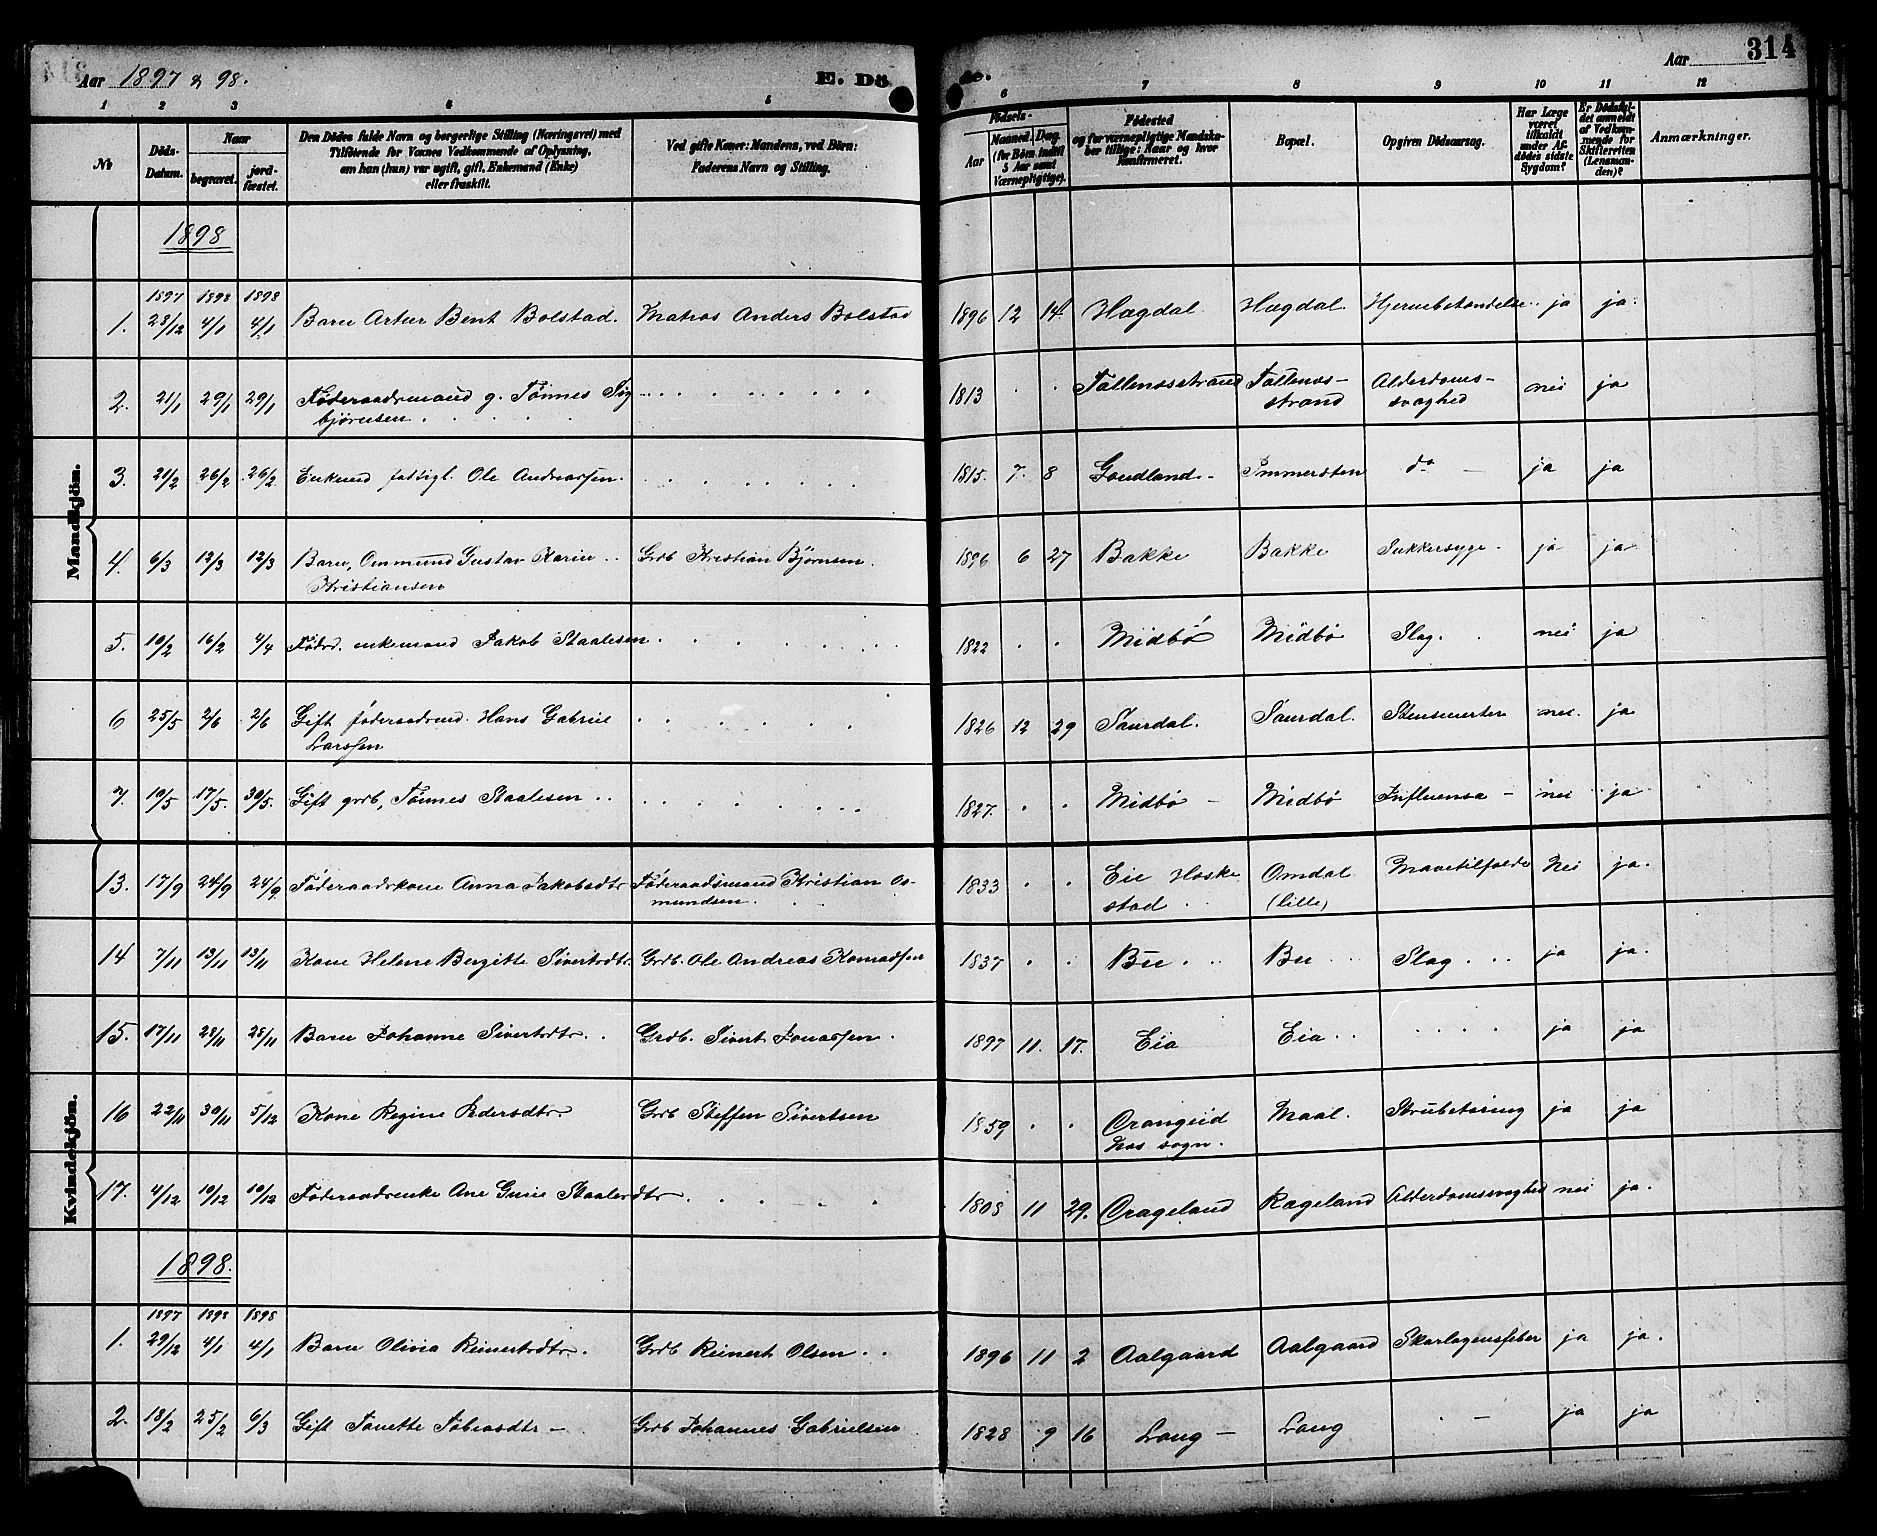 Aar 1897 & 98. E. Dö de. Aar 314
1 2 3 4 5 6 7 8 9 10 11 12
No Döds-Datum. Naar begravet. jord-fæstet. Den Dödes fulde Navn og borgerlige Stilling (Næringsvei) med Tilföiende for Voxnes Vedkommende af Oplysning, om han (hun) var ugift, gift, Enkemand (Enke) eller fraskilt. Ved gifte Koner: Mandens, ved Börn: Faderens Navn og Stilling. Födsels- Aar Maaned. Dag. (for Börn indtil 5 Aar samt Værnepligtige). Födested og for værnepligtige Mandska-ber tillige: Naar og hvor Konfirmeret. Bopæl. Opgiven Dödsaarsag. Har Læge været tilkaldt under Af-dödes sidste Sygdom? Er Dödsfal-det anmeldt af Vedkom-mende for Skifteretten (Lensman-den)? Anmærkninger.
Mandkjön.
1898
1897 1898 1898
1. 28/12 4/1 4/1 Barn Artur Bent Bolstad. Matros Anders Bolstad 1896 12 14 Hægdal Hægdal. Hjernebetændelse ja ja.
2. 21/1 29/1 29/1 Föderaadsmand g. Tönnes Sig- 1813 . . Tallenæsstrand Tallenæs- Alderdoms- nei ja
björnsen. strand svaghed
3. 21/2 26/2 26/2 Enkmd fattigl. Ole Andreassen. 1815. 7. 8 Goudland. Immersten do ja ja
4. 6/3 12/3 12/3 Barn, Ommund Gustav Karin Grdb Kristian Björnsen. 1896 6 27 Bakke Bakke Sukkersyge. ja ja
Kristiansen
5. 10/2 16/2 4/4 Födrd. enkemand Jakob Staalesen 1822 . . Midbö Midbö Slag. nei ja
6 25/5 2/6 2/6 Gift föderaadsmd. Hans Gabriel 1826 12 29 Saurdal. Saurdal. Stensmerter nei. ja
Larssen
7. 10/5 17/5. 30/5. Gift grdb, Tönnes Staalesen 1827. . . Midbö Midbö Influensa nei ja
Kvindekjön.
13. 17/9 24/9 24/9. Föderaadskone Anna Jakobsdtr Föderaadsmand Kristian Os- 1833 . . Eie Heske Omdal Mavetilfælde Nei ja.
mundsen. stad (lille)
14 7/11 13/11 13/11 Kone Helene Bergitte Sivertsdtr. Grdb. Ole Andreas Konradsen 1837 . . Bu Bu Slag ja ja.
15. 17/11 28/11 28/11 Barn Johanne Sivertsdtr. Grdb. Sivert Jonassen. 1897 11. 17. Eia Eia ja ja
16 22/11 30/11 5/12 Kone Regine Pedersdtr. Grdb Steffen Sivertsen 1859 . . Orangeid Maal. Strubetæring ja ja
Næs sogn.
17. 4/12 10/12 10/12 Föderaadsenke Ane Gurie Staalesdtr 1808 11 29. Orageland Rægeland Alderdomssvaghed nei ja.
1898.
1897 1898 1898
1. 29/12 4/1 4/1 Barn Olivia Reinertsdtr. Grdb Reinert Olsen 1896 11 2 Aalgaard Aalgaard Skarlagensfeber ja ja.
2. 18/2 25/2 6/3 Gift Tonette Tobiasdtr Grdb Johannes Gabrielsen 1828 9 16 Laug Laug ja ja